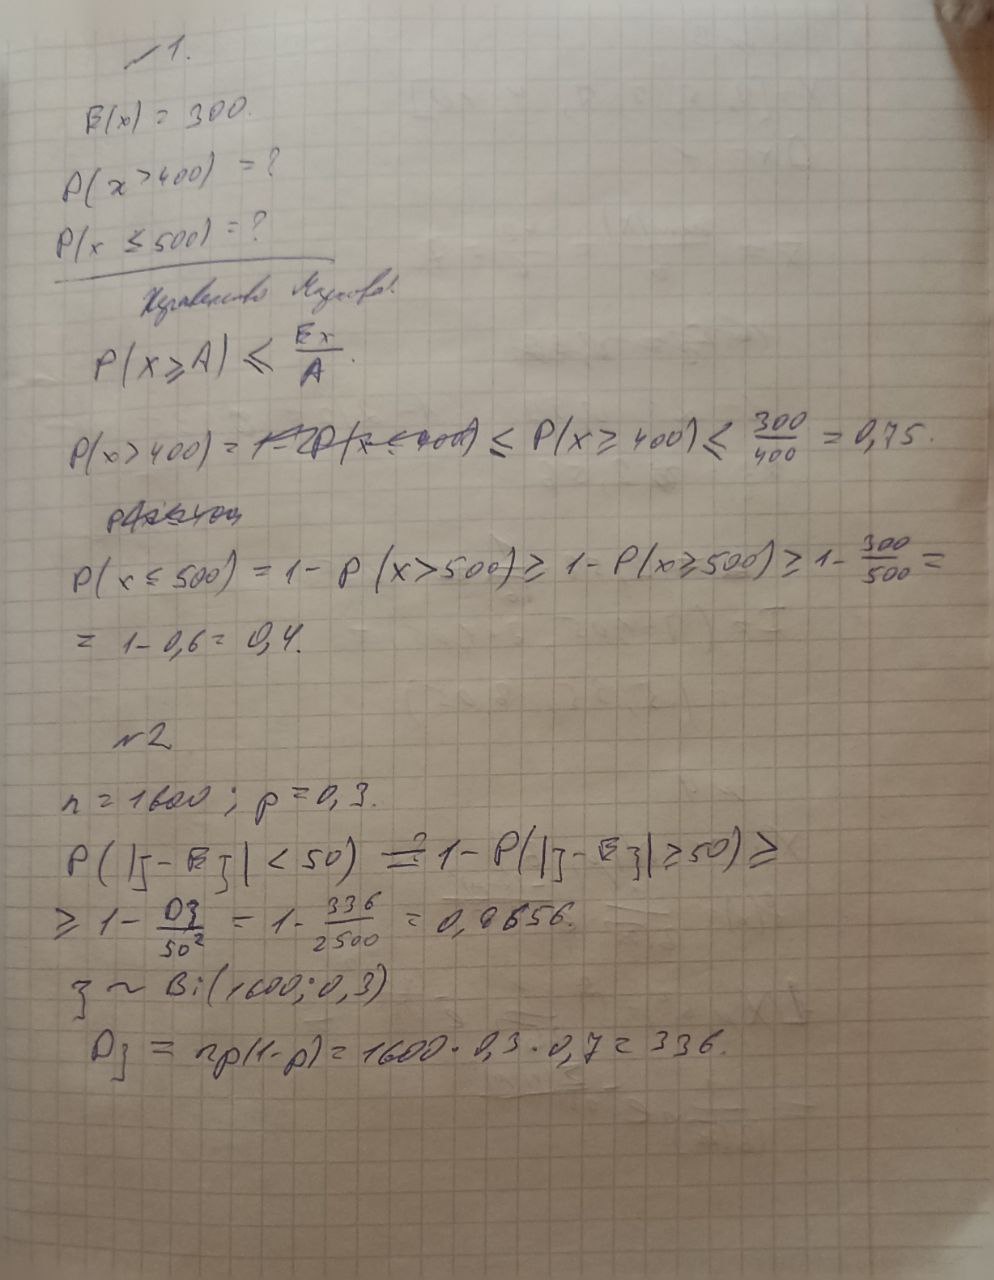 №1.
E(x) = 300.
P(x > 400) = ?
P(x ≤ 500) = ?
Неравенство Маркова:
P(x ≥ A) ≤ Ex/A.
P(x > 400) = 1 - P(x ≤ 400) ≤ P(x ≥ 400) ≤ 300/400 = 0,75.
P(x ≤ 500) = 1 - P(x > 500) ≥ 1 - P(x ≥ 500) ≥ 1 - 300/500 =
= 1 - 0,6 = 0,4.
№2
n = 1600 ; p = 0,3.
P(|ξ - Eξ| < 50) = 1 - P(|ξ - Eξ| ≥ 50) ≥
≥ 1 - Dξ/50² = 1 - 336/2500 = 0,8656.
ξ ~ Bi(1600; 0,3)
Dξ = np(1-p) = 1600 · 0,3 · 0,7 = 336.